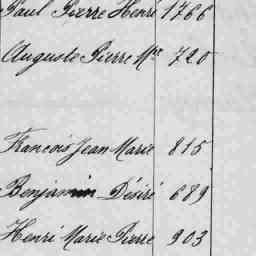 Paul Pierre Henri 1766
Auguste Pierre Mie 720
François Jean Marie 815
Benjamin Désiré 689
Henri Marie Pierre 903